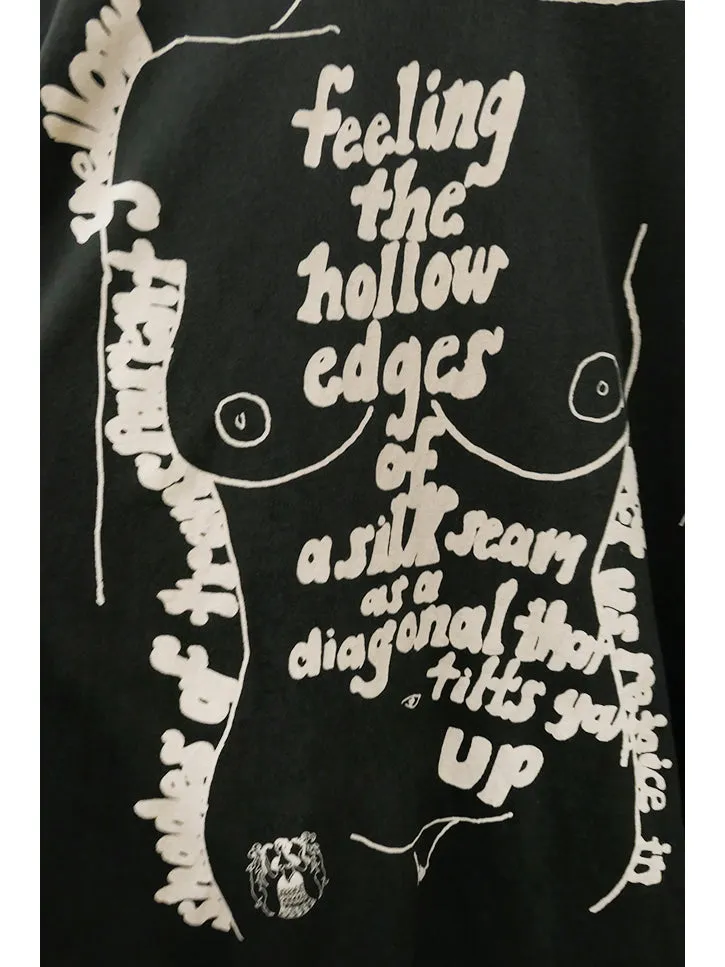 feeling
the
hollow
edges
of
a silk seam
as a
diagonal that
tilts ya
up
let us rejoice in
shades of sepous